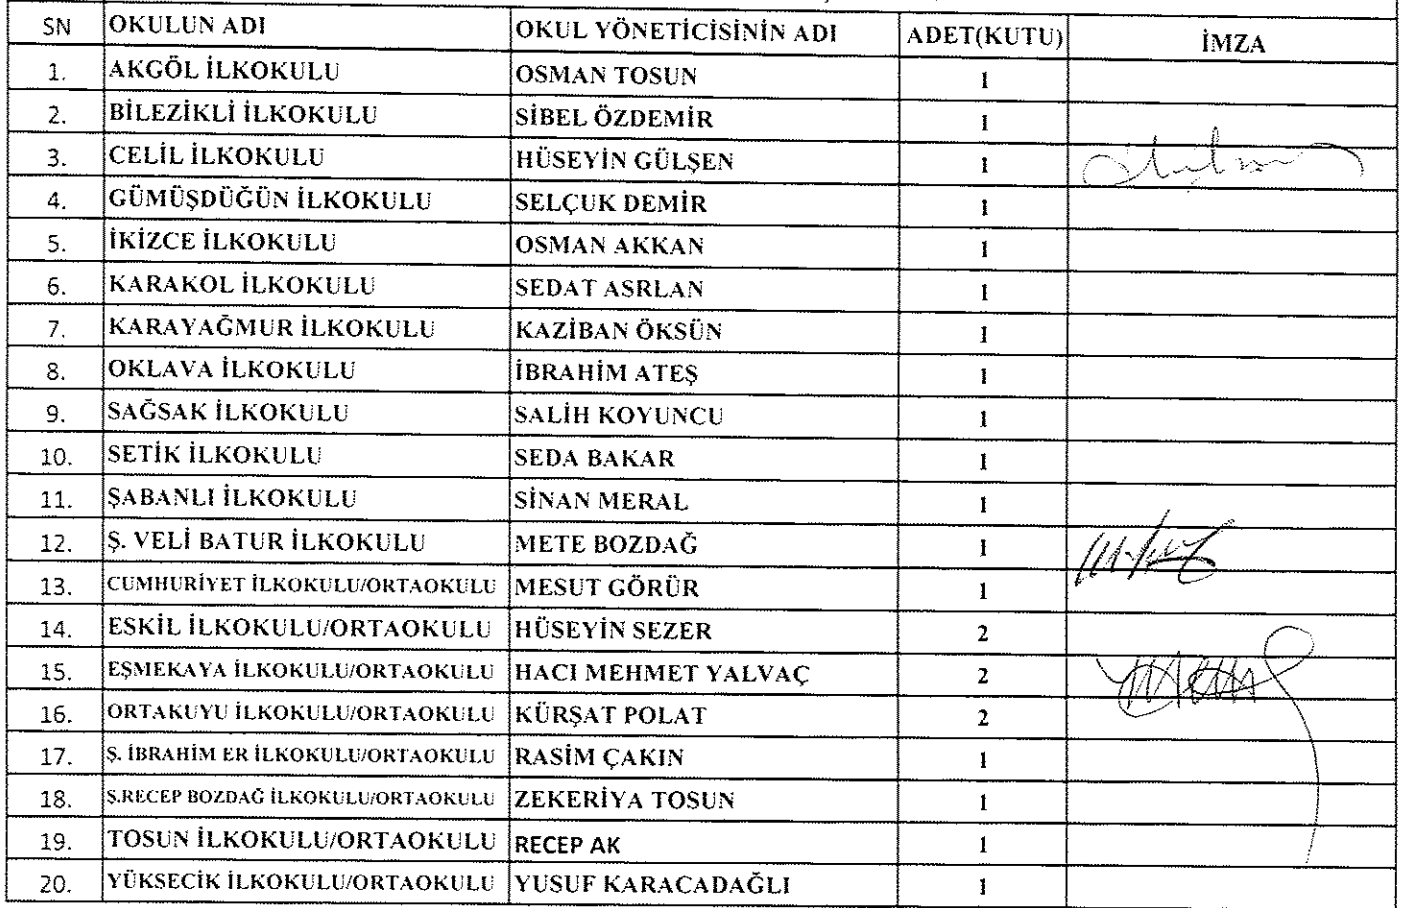 SN OKULUN ADI OKUL YÖNETİCİSİNİN ADI ADET(KUTU) İMZA
1. AKGÖL İLKOKULU OSMAN TOSUN 1
2. BİLEZİKLİ İLKOKULU SİBEL ÖZDEMİR 1
3. CELİL İLKOKULU HÜSEYİN GÜLŞEN 1
4. GÜMÜŞDÜĞÜN İLKOKULU SELÇUK DEMİR 1
5. İKİZCE İLKOKULU OSMAN AKKAN 1
6. KARAKOL İLKOKULU SEDAT ASRLAN 1
7. KARAYAĞMUR İLKOKULU KAZİBAN ÖKSÜN 1
8. OKLAVA İLKOKULU İBRAHİM ATEŞ 1
9. SAĞSAK İLKOKULU SALİH KOYUNCU 1
10. SETİK İLKOKULU SEDA BAKAR 1
11. ŞABANLI İLKOKULU SİNAN MERAL 1
12. Ş. VELİ BATUR İLKOKULU METE BOZDAĞ 1
13. CUMHURİYET İLKOKULU/ORTAOKULU MESUT GÖRÜR 1
14. ESKİL İLKOKULU/ORTAOKULU HÜSEYİN SEZER 2
15. EŞMEKAYA İLKOKULU/ORTAOKULU HACI MEHMET YALVAÇ 2
16. ORTAKUYU İLKOKULU/ORTAOKULU KÜRŞAT POLAT 2
17. Ş. İBRAHİM ER İLKOKULU/ORTAOKULU RASİM ÇAKIN 1
18. Ş.RECEP BOZDAĞ İLKOKULU/ORTAOKULU ZEKERİYA TOSUN 1
19. TOSUN İLKOKULU/ORTAOKULU RECEP AK 1
20. YÜKSECİK İLKOKULU/ORTAOKULU YUSUF KARACADAĞLI 1